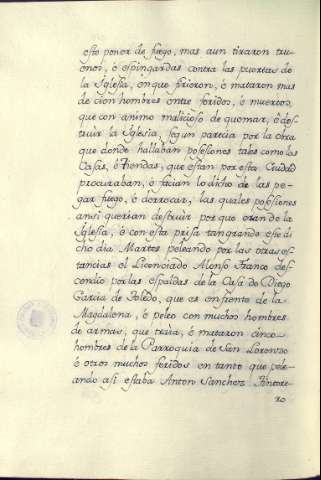 esto poner de fuego, mas aun tiraron tru-
enos, è espingardas contra las puertas de
la Iglesia, en que firieron, è mataron mas
de cien hombres entre feridos, è muertos,
que con animo malicioso de quemar, è des-
truir la Iglesia, segun parecia por la obra
que donde hallaban posesiones tales como las
Casas, è thondas, que estan por esta Ciudad
procuraban, è facian lo dicho de las pe-
gar fuego, è derrocar, las quales posesiones
ansi querian destruir por que eran de la
Iglesia, è con esta prisa tan grande este di-
cho dia Martes peleando por las otras es-
tancias el Licenciado Alonso Franco des-
cendio por las espaldas de la Casa de Diego
Garcia de Toledo, que es enfrente de la
Magdalena, è peleo con muchos hombres
de armas, que traìa, è mataron cinco
hombres de la Parroquia de San Lorenzo
è otros muchos feridos en tanto que pele-
ando asi estaba Anton Sanchez Pintore-
ro